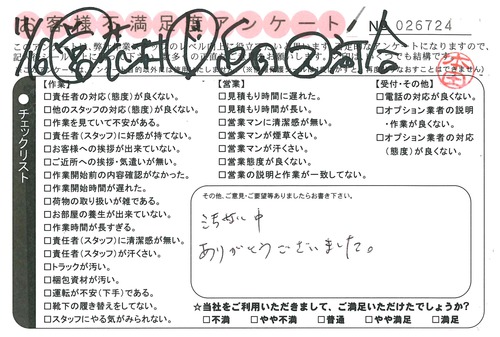 お客様不満足度アンケート
No 026724
【作業】
□責任者の対応(態度)が良くない。
□他のスタッフの対応(態度)が良くない。
□作業を見ていて不安がある。
□責任者(スタッフ)に好感が持てない。
□お客様への挨拶が出来ていない。
□ご近所への挨拶・気遣いが無い。
□作業開始前の内容確認がなかった。
□作業開始時間が遅れた。
□荷物の取り扱いが雑である。
□お部屋の養生が出来ていない。
□作業時間が長すぎる。
□責任者(スタッフ)に清潔感が無い。
□責任者(スタッフ)が汗くさい。
□トラックが汚い。
□梱包資材が汚い。
□運転が不安(下手)である。
□靴下の履き替えをしてない。
□スタッフにやる気がみられない。
【営業】
□見積もり時間に遅れた。
□見積もり時間が長い。
□営業マンに清潔感が無い。
□営業マンが煙草くさい。
□営業マンが汗くさい。
□営業態度が良くない。
□営業の説明と作業が一致してない。
【受付・その他】
□電話の対応が良くない。
□オプション業者の説明
・作業が良くない。
□オプション業者の対応
(態度)が良くない。
チェックリスト
その他、ご意見・ご要望等ありましたらお書き下さい。
ありがとうございました。
☆当社をご利用いただきまして、ご満足いただけたでしょうか?
□不満 □やや不満 □普通 □やや満足 □満足